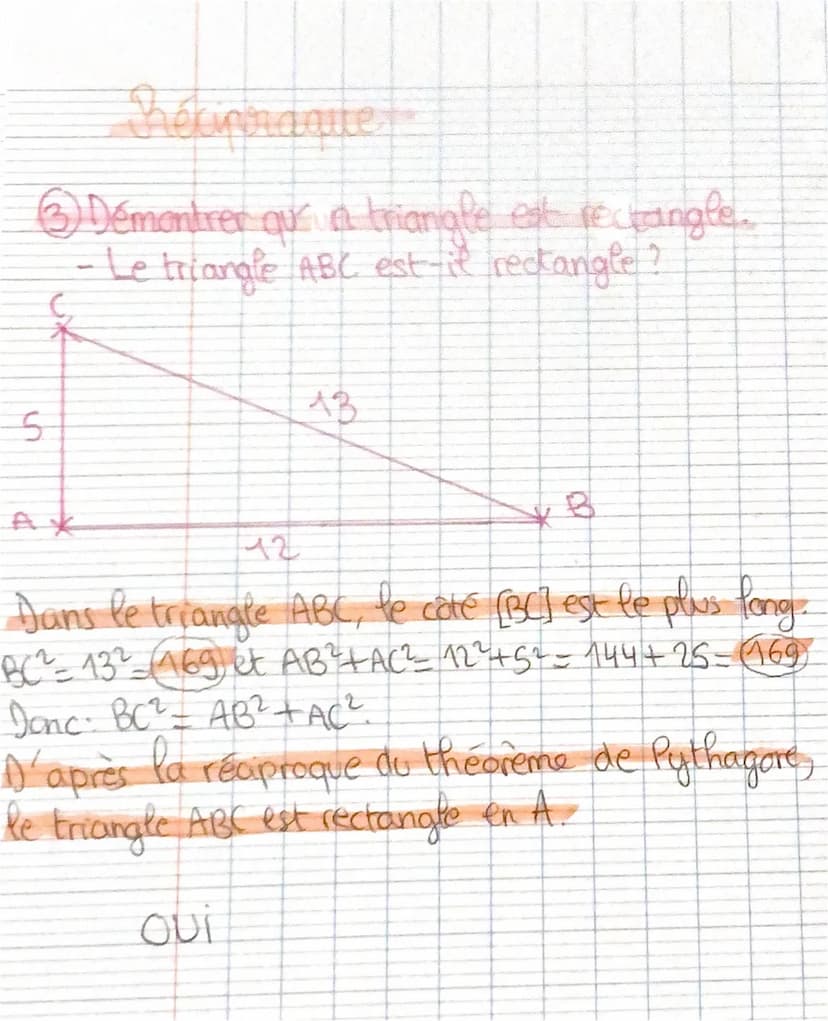 Réciproque
③ Démontrer qu'un triangle est rectangle.
- Le triangle ABC est-il rectangle ?
C
5
13
A
B
12
Dans le triangle ABC, le côté [BC] est le plus long.
BC² = 13² = 169 et AB² + AC² = 12² + 5² = 144 + 25 = 169
Donc : BC² = AB² + AC².
D'après la réciproque du théorème de Pythagore,
le triangle ABC est rectangle en A.
OUi